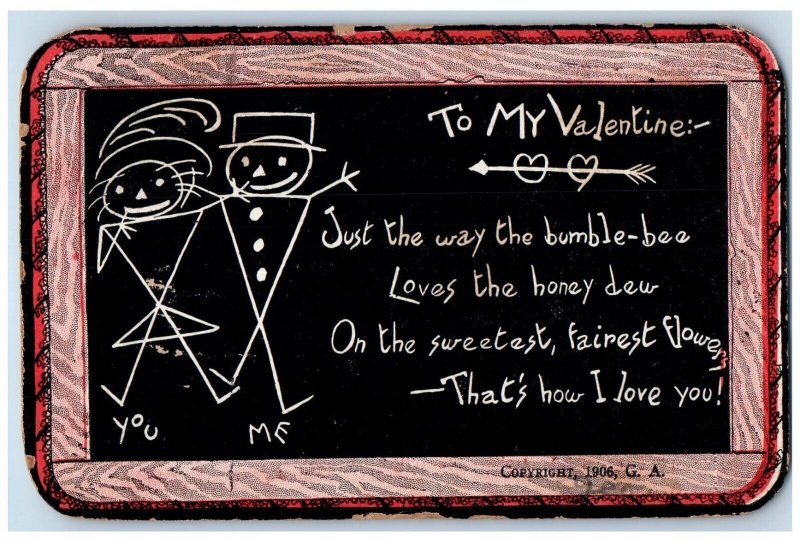 To My Valentine:-
Just the way the bumble-bee
Loves the honey dew
On the sweetest, fairest flower,
—That's how I love you!
YOU
ME
COPYRIGHT, 1906, G. A.